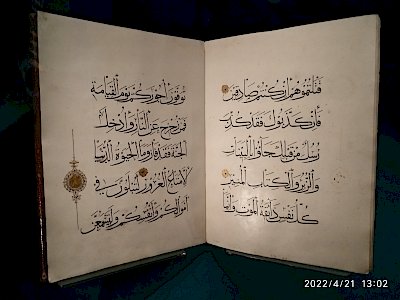 قتلتموهم ان كنتم صادقين
فان كذبوك فقد كذب
رسل من قبلك جاؤ بالبينات
والزبر والكتاب المنير
كل نفس ذائقة الموت وانما
توفون اجوركم يوم القيامة
فمن زحزح عن النار وادخل
الجنة فقد فاز وما الحيوة الدنيا
الا متاع الغرور لتبلون في
اموالكم وانفسكم ولتسمعن
2022/4/21 13:02